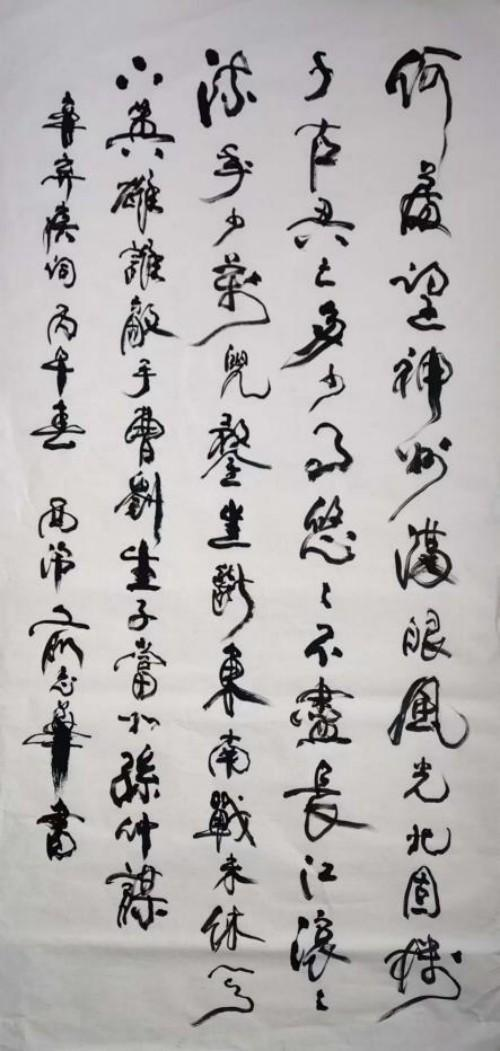 何處望神州滿眼風光北固樓
千古兴亡多少事悠々不盡長江滚々
流年少萬兜鍪坐斷東南戰未休天
下英雄誰敵手曹劉生子當如孫仲謀
辛弃疾詞丙午春 志華書